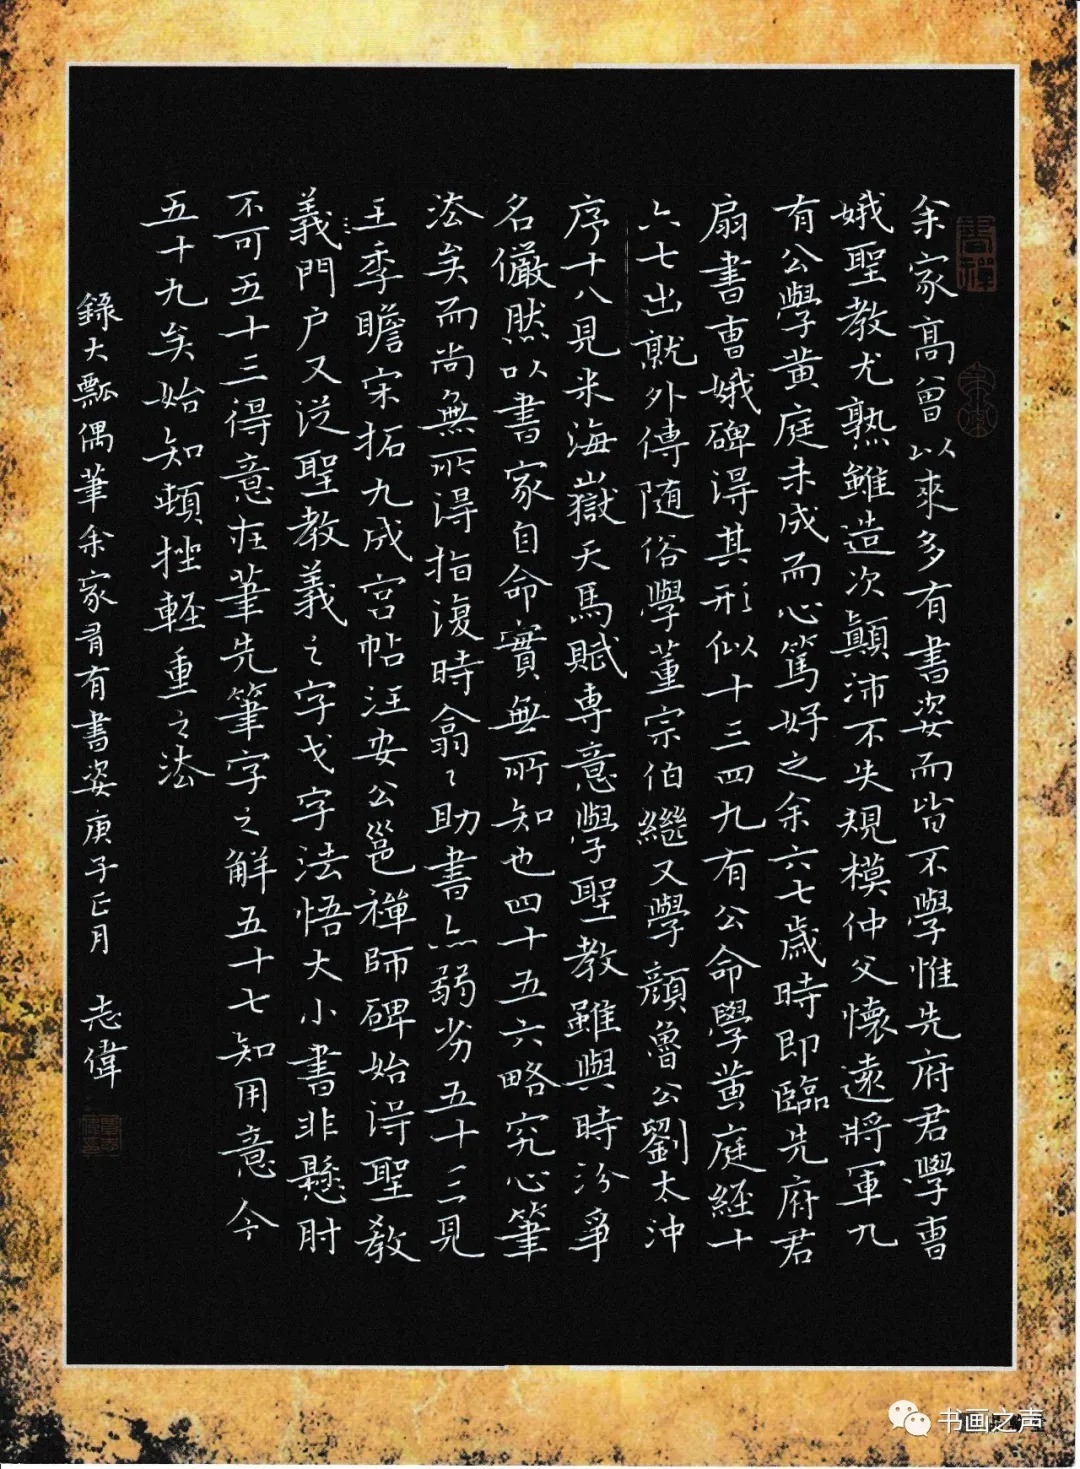 余家高曾以來多有書姿而皆不學惟先府君學曹
娥聖教尤熟雖造次顛沛不失規模仲父懷遠將軍九
有公學黃庭未成而心篤好之余六七歲時即臨先府君
扇書曹娥碑得其形似十三四九有公命學黃庭經十
六七出就外傅随俗學董宗伯繼又學顔魯公劉太沖
序十八見米海嶽天馬賦専意學聖教雖與時汾爭
名儼然以書家自命實無所知也四十五六略究心筆
法矣而尚無所得指復時翕〻助書亦弱劣五十二見
王季瞻宋拓九成宮帖汪安公邕禪師碑始得聖教
義門户又從聖教義之字戈字法悟大小書非懸肘
不可五十三得意在筆先筆字之解五十七知用意今
五十九矣始知頓挫輕重之法
錄大瓢偶筆余家有書姿庚子正月 志偉
书画之声